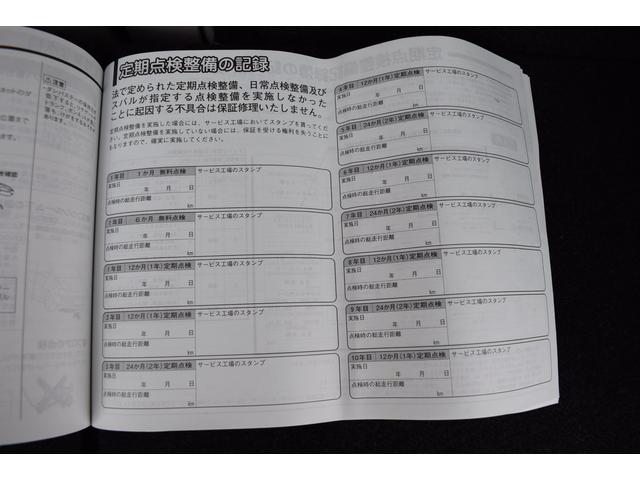 定期点検整備の記録
法で定められた定期点検整備、日常点検整備及び
スバルが指定する点検整備を実施しなかった
ことに起因する不具合は保証修理いたしません。
定期点検整備を実施した場合には、サービス工場においてスタンプを貰ってくだ
さい。定期点検整備を実施していない場合には、保証を受ける権利を失うことに
もなりますので、確実に実施してください。
1年目 1か月 無料点検 サービス工場のスタンプ
実施日
年 月 日
点検時の総走行距離
km
1年目 6か月 無料点検 サービス工場のスタンプ
実施日
年 月 日
点検時の総走行距離
km
1年目 12か月(1年)定期点検 サービス工場のスタンプ
実施日
年 月 日
点検時の総走行距離
km
2年目 12か月(1年)定期点検 サービス工場のスタンプ
実施日
年 月 日
点検時の総走行距離
km
3年目 24か月(2年)定期点検 サービス工場のスタンプ
実施日
年 月 日
点検時の総走行距離
km
4年目 12か月(1年)定期点検 サービス工場のスタンプ
実施日
年 月 日
点検時の総走行距離
km
5年目 24か月(2年)定期点検 サービス工場のスタンプ
実施日
年 月 日
点検時の総走行距離
km
6年目 12か月(1年)定期点検 サービス工場のスタンプ
実施日
年 月 日
点検時の総走行距離
km
7年目 24か月(2年)定期点検 サービス工場のスタンプ
実施日
年 月 日
点検時の総走行距離
km
8年目 12か月(1年)定期点検 サービス工場のスタンプ
実施日
年 月 日
点検時の総走行距離
km
9年目 24か月(2年)定期点検 サービス工場のスタンプ
実施日
年 月 日
点検時の総走行距離
km
10年目 12か月(1年)定期点検 サービス工場のスタンプ
実施日
年 月 日
点検時の総走行距離
km